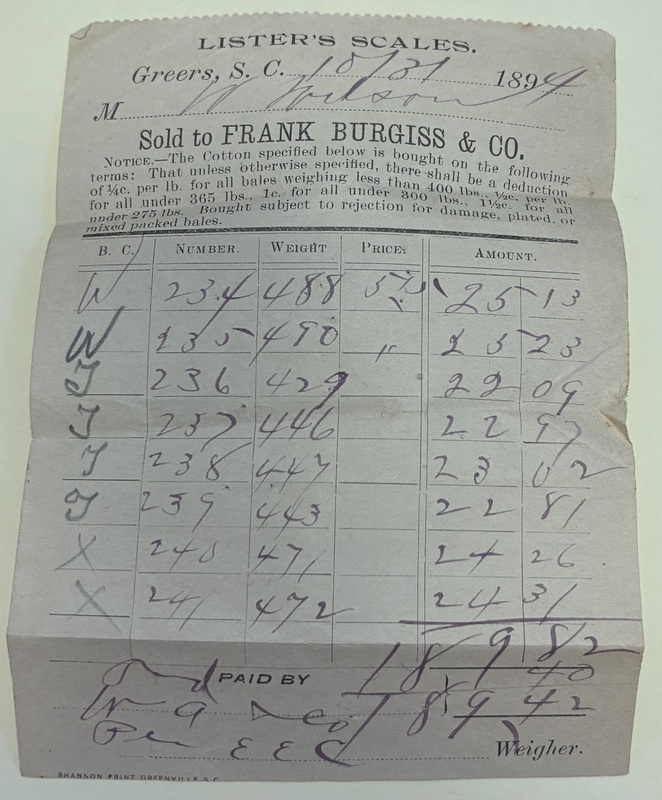 LISTER'S SCALES.
Greers, S. C. 10/31 1894
M W Wilson
Sold to FRANK BURGISS & CO.
NOTICE.—The Cotton specified below is bought on the following
terms: That unless otherwise specified, there shall be a deduction
of ¼c. per lb. for all bales weighing less than 400 lbs., ½c. per lb.
for all under 365 lbs., 1c. for all under 300 lbs., 1½c. for all
under 275 lbs. Bought subject to rejection for damage, plated, or
mixed packed bales.
B. C. NUMBER. WEIGHT PRICE. AMOUNT.
W 234 488 25 13
W 235 490 " 25 23
J 236 429 22 09
J 237 446 22 97
J 238 447 23 02
J 239 443 22 81
X 240 471 24 26
X 241 472 24 31
189 82
PAID BY 40
W G Co 189 42
Per E E C Weigher.
SHANSON PRINT GREENVILLE S.C.